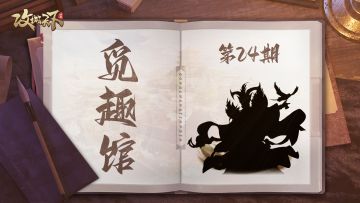 攻城掠地
觅趣馆
第24期